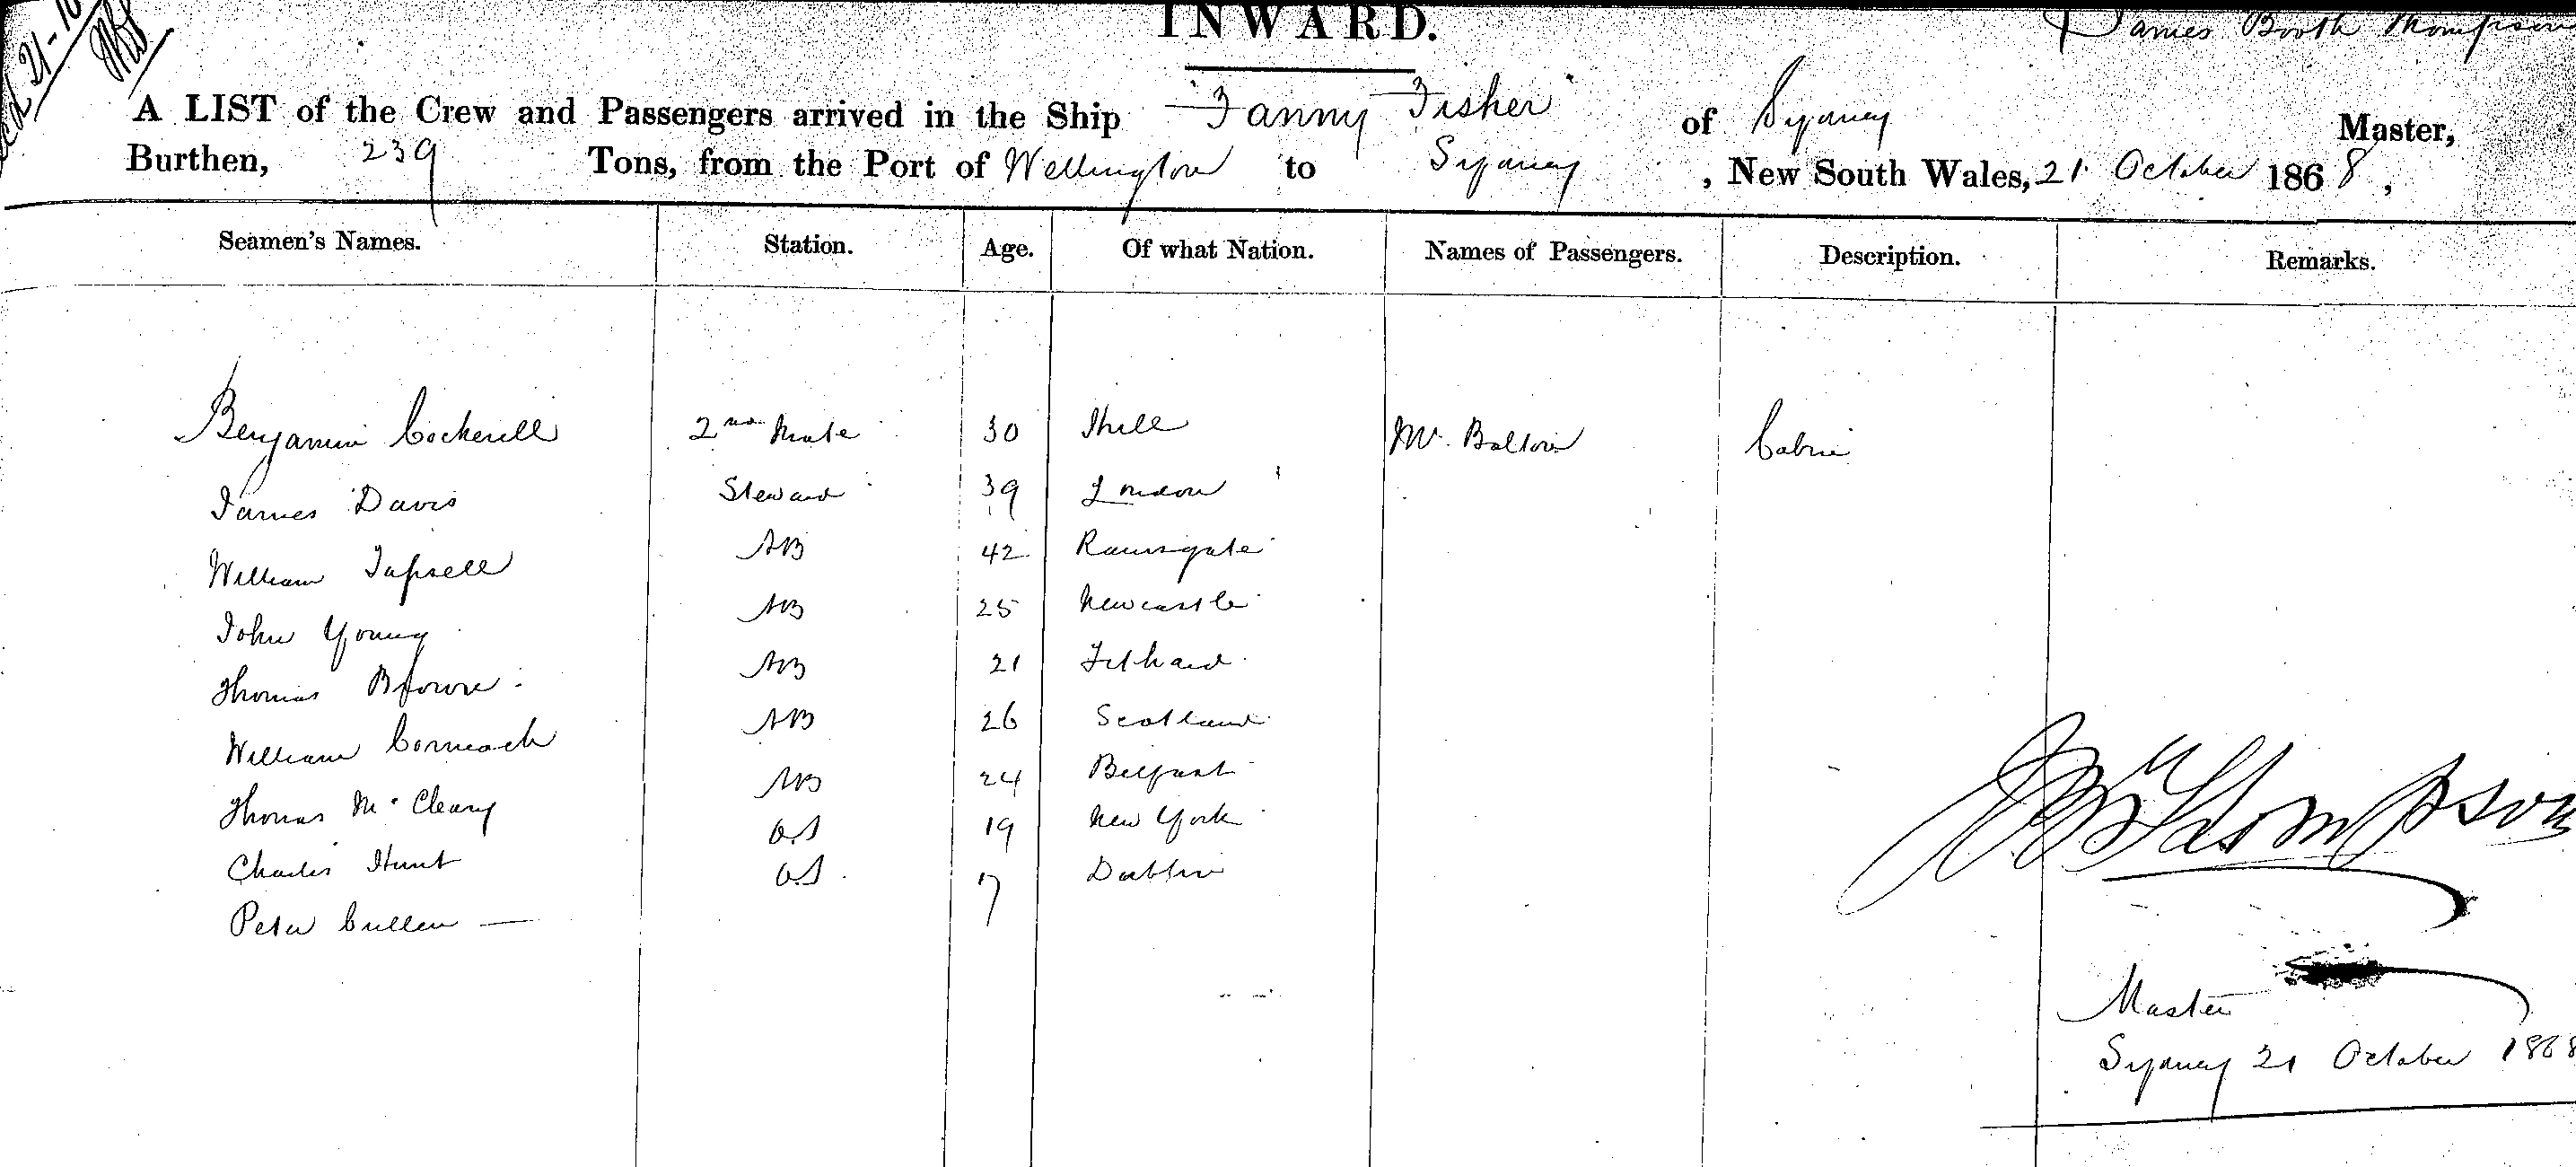 INWARD.
James Booth Thompson
A LIST of the Crew and Passengers arrived in the Ship "Fanny Fisher" of Sydney Master,
Burthen, 239 Tons, from the Port of Wellington to Sydney, New South Wales, 21 October 1868,
Seamen's Names. Station. Age. Of what Nation. Names of Passengers. Description. Remarks.
Benjamin Cockerell 2nd Mate 30 Hull Mr. Bolton Cabin
James Davis Steward 39 London
William Tapsell AB 42 Ramsgate
John Young AB 25 Newcastle
Thomas Browne AB 21
William Cormack AB 26 Scotland
Thomas McCleary AB 24 Belfast
Charles Hunt O.S 19 New York
Peter Cullen — O.S 17 Dublin
JBThompson
Master
Sydney 21 October 1868